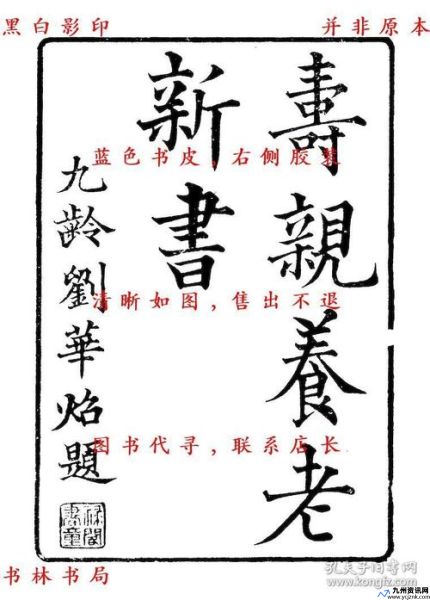 黑白影印
并非原本
壽親養老
新書
九齡劉華焰題
蓝色书皮，右侧胶装
清晰如图，售出不退
图书代寻，联系店长
书林书局
孔夫子旧书网
kongfz.com
九州资讯网
www.yujznk.com